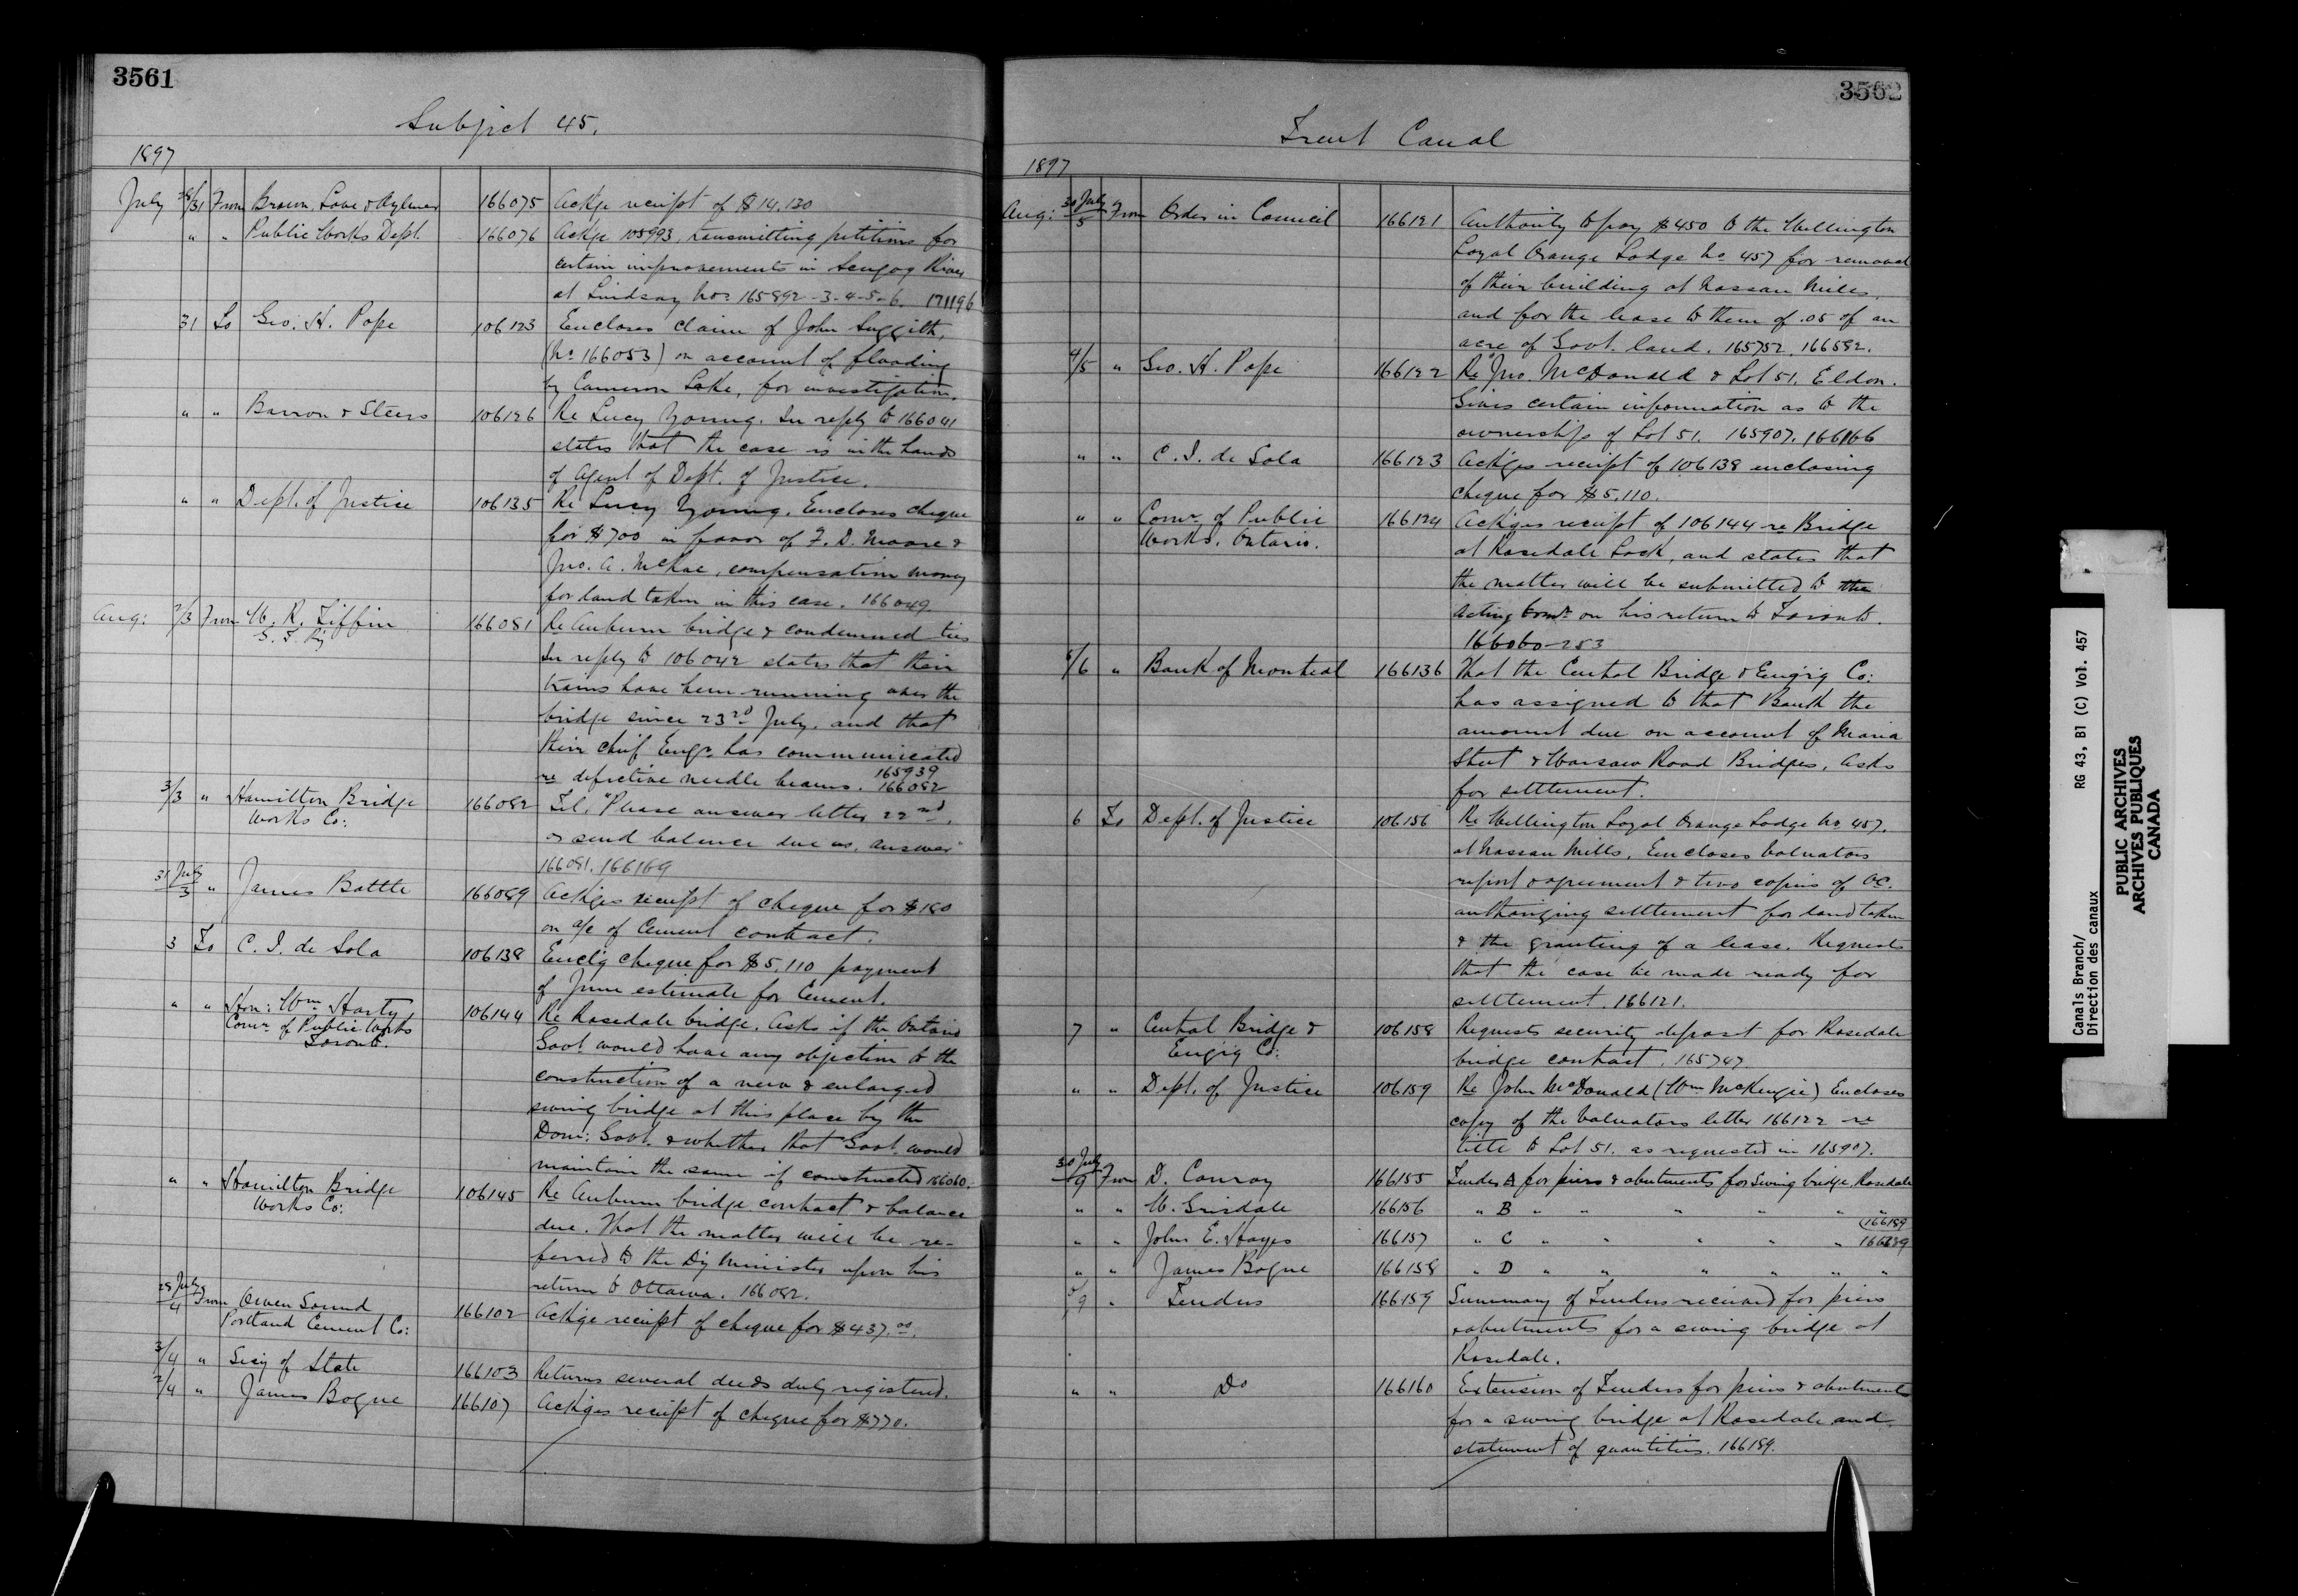 3561
Subject 45.
1897
July 28/31 From Brown, Love & Aylmer 166075 Ackge receipt of $14.120
" " Public Works Dept. 166076 Ackge 105993, transmitting petitions for
certain improvements in Scugog River
at Lindsay Nos 165892-3-4-5-6. 171196
31 To Geo. H. Pope 106123 Encloses claim of John Suggitt,
(No 166053) on account of flooding
by Cameron Lake, for investigation.
" " Barron & Steers 106126 Re Lucy Young. In reply to 166041
states that the case is in the hands
of Agent of Dept. of Justice.
" " Dept. of Justice 106135 Re Lucy Young. Encloses cheque
for $700 in favor of F. D. Moore &
Jno. A. McRae, compensation money
for land taken in this case. 166049
Aug: 2/3 From W. R. Tiffin 166081 Re Auburn bridge & condemned ties
G. T. Ry
In reply to 106042 states that their
trains have been running over the
bridge since 23rd July, and that
their Chief Engr. has communicated
re defective needle beams. 165939 166082
3/3 " Hamilton Bridge 166082 Tel. "Please answer letter 22nd,
Works Co: or send balance due us, answer"
166081. 166169
31 July/3 " James Battle 166089 Ackges receipt of cheque for $180
on a/c of Cement contract.
3 To C. I. de Sola 106138 Enclg cheque for $5.110 payment
of June estimate for Cement.
" " Hon: Wm Harty 106144 Re Rosedale bridge. Asks if the Ontario
Comr. of Public Works
Toronto.
Govt. would have any objection to the
construction of a new & enlarged
swing bridge at this place by the
Dom: Govt. & whether that Govt. would
maintain the same if constructed 166060.
" " Hamilton Bridge 106145 Re Auburn bridge contract & balance
Works Co: due. That the matter will be re-
ferred to the Dy Minister upon his
return to Ottawa. 166082.
29 July/4 From Owen Sound 166102 Ackge receipt of cheque for $437.00.
Portland Cement Co:
3/4 " Secy of State 166103 Returns several deeds duly registered.
2/4 " James Bogue 166107 Ackges receipt of cheque for $770.
3562
Trent Canal
1897
Aug: 30 July/5 From Order in Council 166121 Authority to pay $450 to the Wellington
Loyal Orange Lodge No 457 for removal
of their building at Nassau Mills,
and for the lease to them of .05 of an
acre of Govt. land. 165752. 166582.
4/5 " Geo. H. Pope 166122 Re Jno. McDonald & Lot 51, Eldon.
Gives certain information as to the
ownership of Lot 51. 165907. 166166
" " C. I. de Sola 166123 Ackges receipt of 106138 enclosing
cheque for $5.110.
" " Comr. of Public 166124 Ackges receipt of 106144 re Bridge
Works. Ontario. at Rosedale Lock, and states that
the matter will be submitted to the
Acting Comr. on his return to Toronto.
166060-253
5/6 " Bank of Montreal 166136 That the Central Bridge & Engrg Co:
has assigned to that Bank the
amount due on account of Maria
Street & Warsaw Road Bridges. Asks
for settlement.
6 To Dept. of Justice 106156 Re Wellington Loyal Orange Lodge No 457.
at Nassau Mills. Encloses Valuators
report & agreement & two copies of O.C.
authorizing settlement for land taken
& the granting of a lease. Requests
that the case be made ready for
settlement. 166121.
7 " Central Bridge & 106158 Requests security deposit for Rosedale
Engrg Co: bridge contract. 165747
" " Dept. of Justice 106159 Re John McDonald (Wm McKenzie) Encloses
copy of the Valuators letter 166122 re
title to Lot 51. as requested in 165907.
30 July/9 From D. Conroy 166155 Tender A for piers & abutments for Swing bridge, Rosedale
" " W. Grisdale 166156 " B " " " " " "
166189
" " John E. Hayes 166157 " C " " " " "
" " James Bogue 166158 " D " " " " " "
9 " Tenders 166159 Summary of Tenders received for piers
& abutments for a swing bridge at
Rosedale.
" " Do 166160 Extension of Tenders for piers & abutments
for a swing bridge at Rosedale and
statement of quantities. 166189.
Canals Branch/ RG 43, B1 (C) Vol. 457
Direction des canaux
PUBLIC ARCHIVES
ARCHIVES PUBLIQUES
CANADA